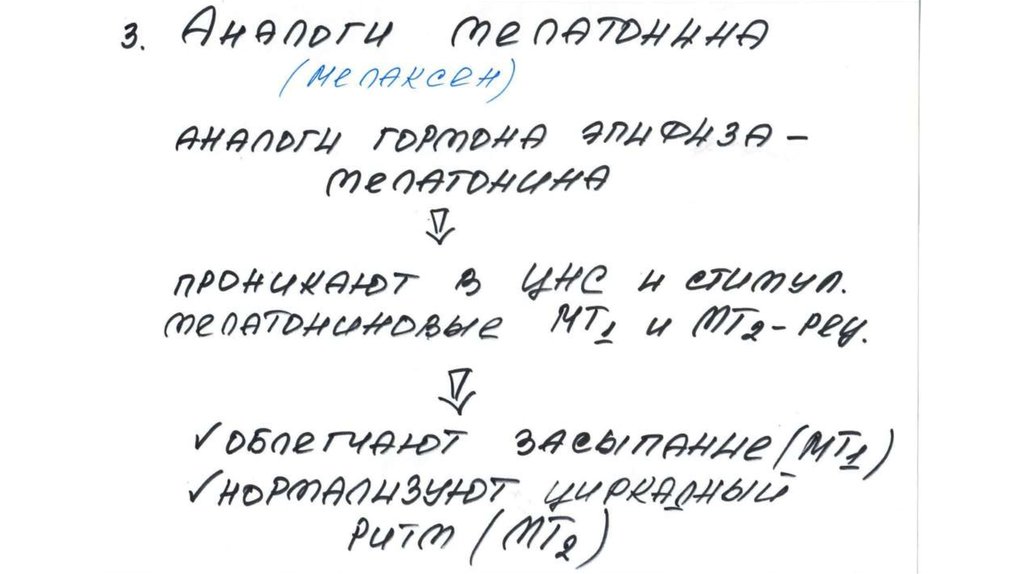 3. Аналоги мелатонина
(мелаксен)
аналоги гормона эпифиза –
мелатонина
⇓
проникают в ЦНС и стимул.
мелатониновые МТ1 и МТ2-рец.
⇓
✓облегчают засыпание (МТ1)
✓нормализуют циркадный
ритм (МТ2)